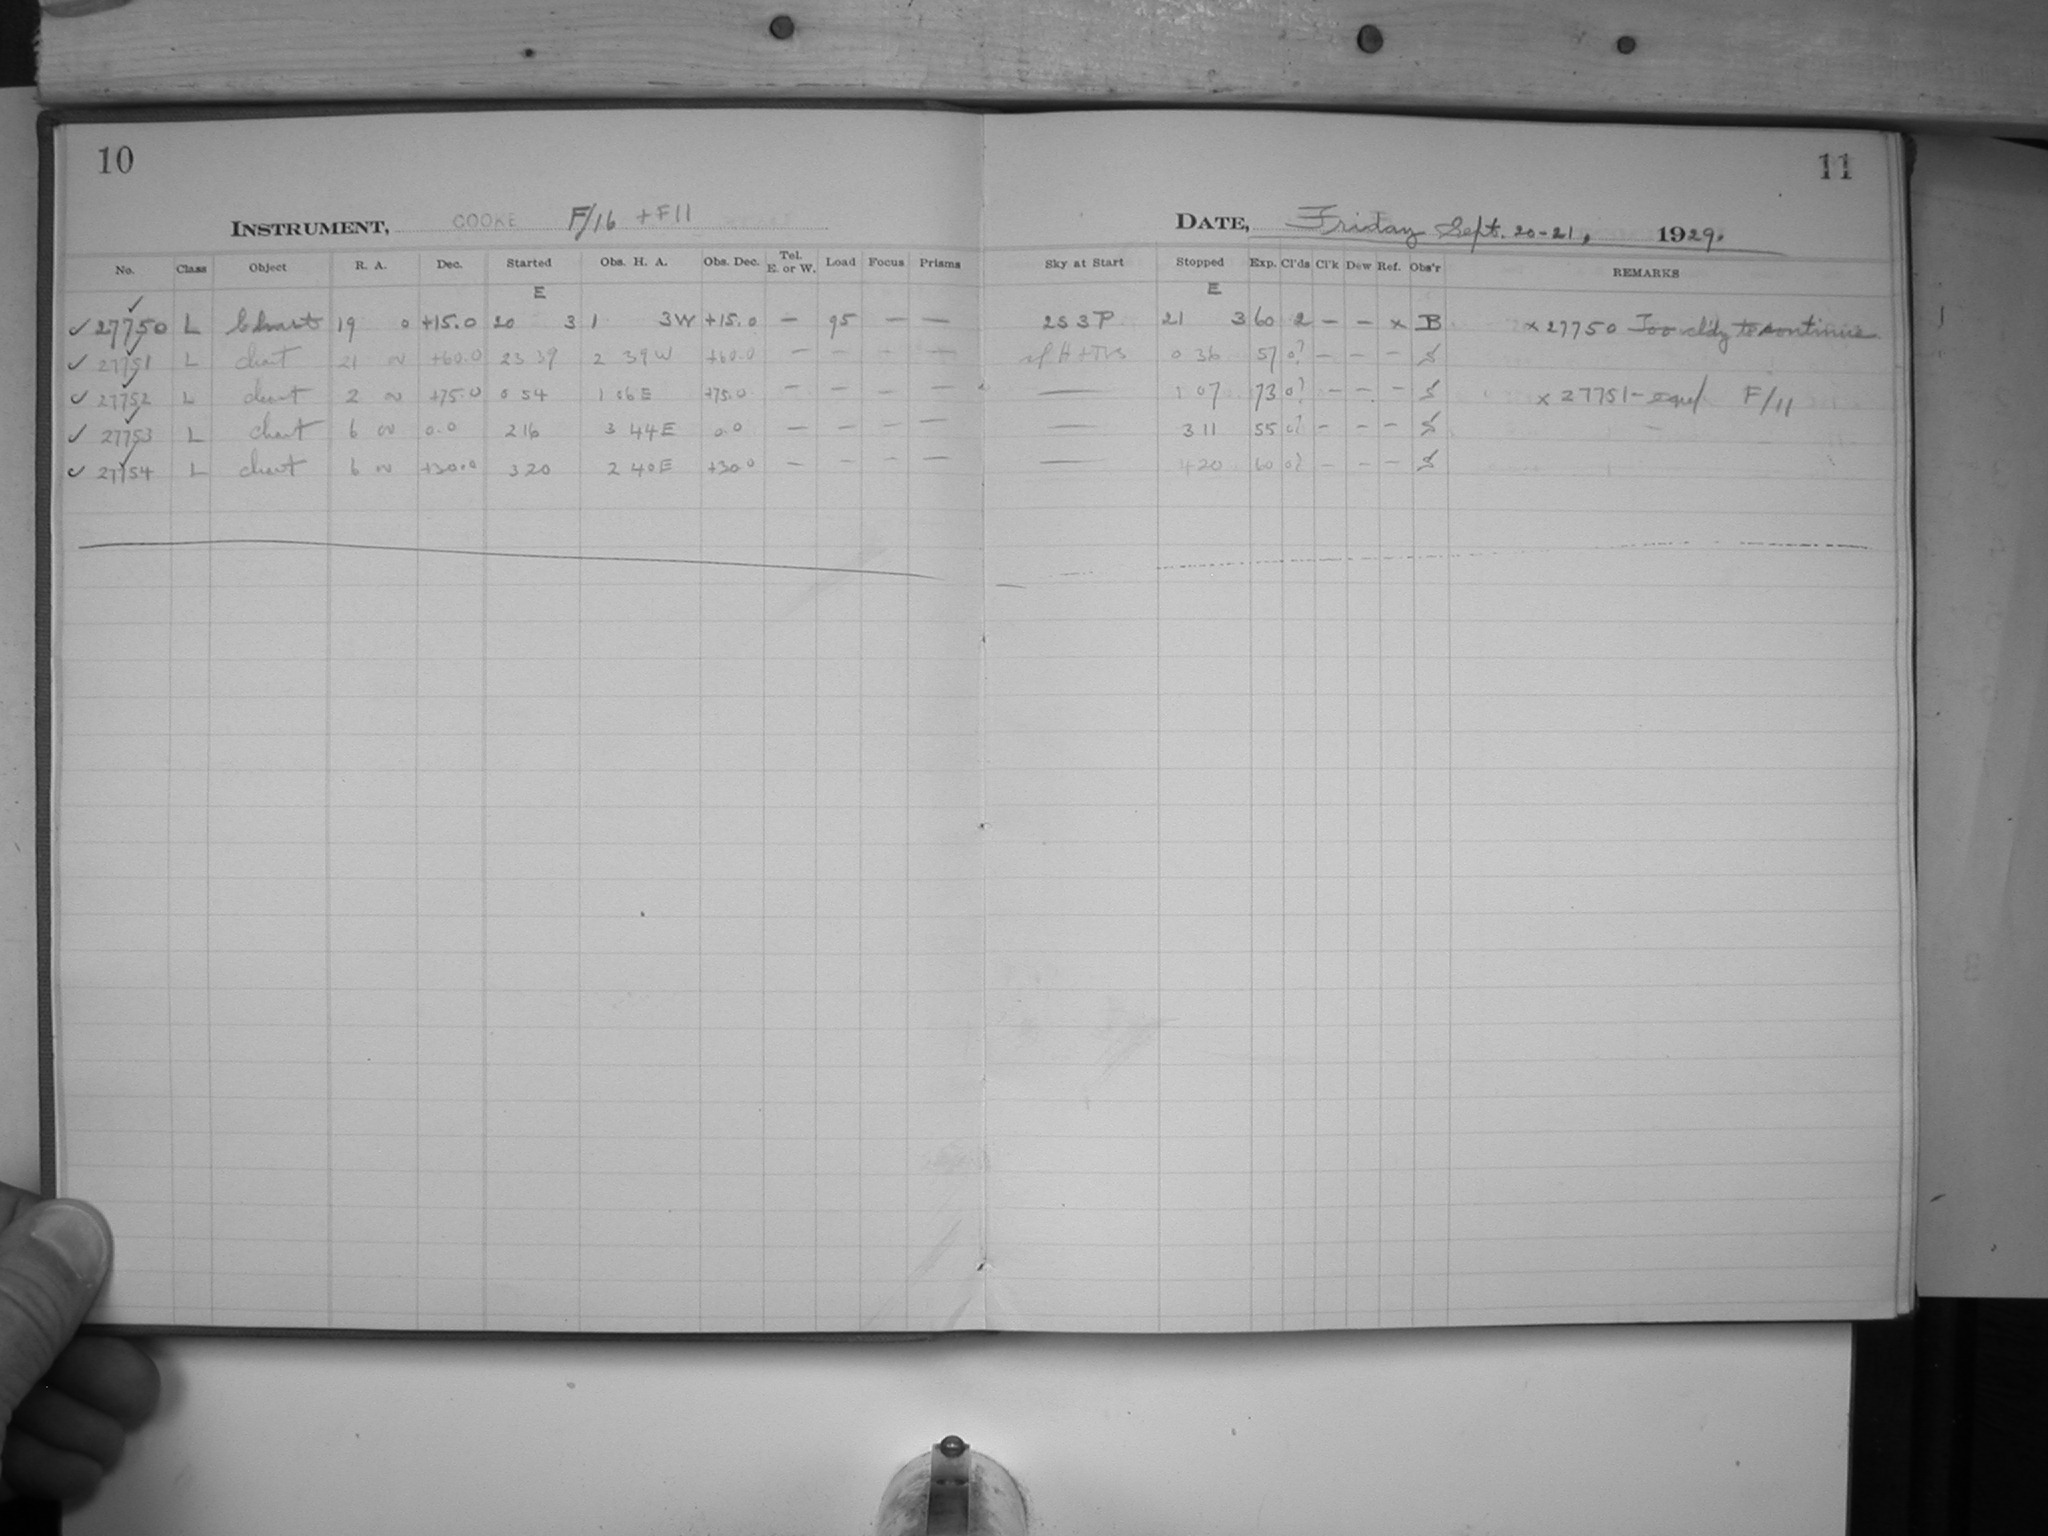 10
11
INSTRUMENT, COOKE F/16 + F11
DATE, Friday Sept. 20-21, 1929.
No. Class Object R. A. Dec. Started Obs. H. A. Obs. Dec. Tel. E. or W. Load Focus Prisms Sky at Start Stopped Exp. Cl'ds Cl'k Dew Ref. Obs'r REMARKS
E E
✓ 27750 L Chart 19 0 +15.0 20 3 1 3W +15.0 — 95 — — 2S 3P 21 3 60 2 — — x B x 27750 Too cldy to continue
✓ 27751 L chart 21 +60.0 23 39 2 39W +60.0 — — — — 0 36 57 0? — — —
✓ 27752 L chart 2 +75.0 0 54 1 06E +75.0 — — — — — 07 73 0? — — — x 27751- F/11
✓ 27753 L chart 6 0.0 2 16 3 44E 0.0 — — — — — 3 11 55 0? — — —
✓ 27754 L chart 6 +30.0 3 20 2 40E +30.0 — — — — — 4 20 60 0? — — —